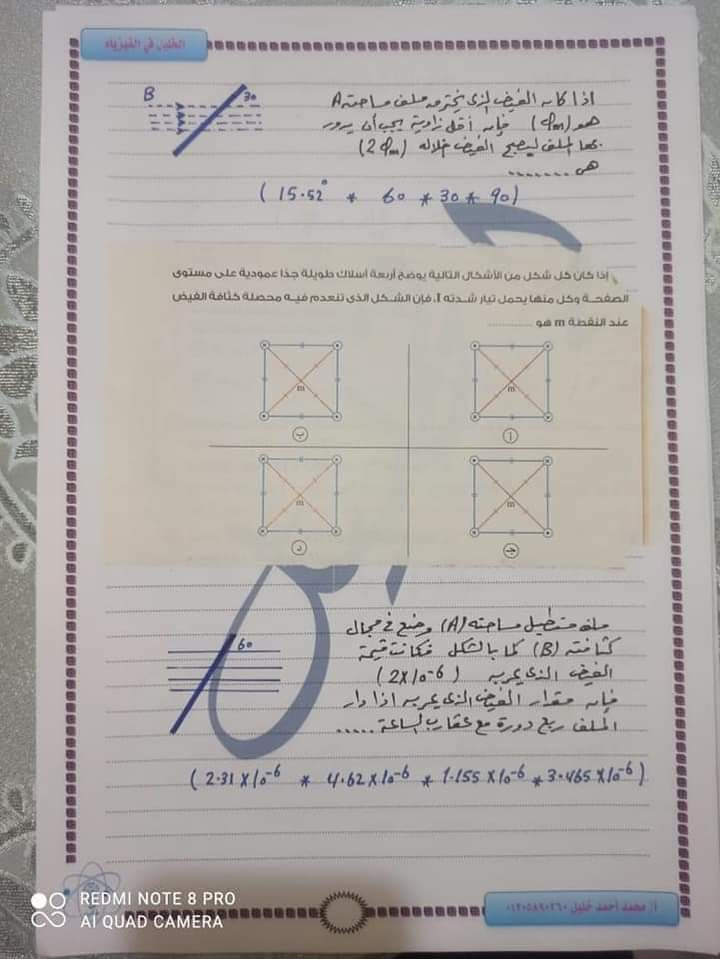 الخليل في الفيزياء
B
30
اذا كان الفيض الذى يخترق ملف مساحته A
هو (φm) فإن أقل زاوية يجب أن يدور
بها الملف ليصبح الفيض خلاله (2 φm)
هى .......
( 15.52° * 60 * 30 * 90 )
إذا كان كل شكل من الأشكال التالية يوضح أربعة أسلاك طويلة جذا عمودية على مستوى
الصفحة وكل منها يحمل تيار شدته I، فإن الشكل الذى تنعدم فيه محصلة كثافة الفيض
عند النقطة m هو ............
m
أ
m
ب
m
جـ
m
د
ملف مستطيل مساحته (A) وضع فى مجال
كثافته (B) كما بالشكل فكانت قيمة
الفيض الذى يمر به (2x10-6)
فإن مقدار الفيض الذى يمر به اذا دار
الملف ربع دورة مع عقارب الساعة .....
60
( 2.31 x10-6 * 4.62 x10-6 * 1.155 x10-6 * 3.465 x10-6 )
أ/ محمد أحمد خليل ٠١٢٠٥٨٩٠٢٦٠
REDMI NOTE 8 PRO
AI QUAD CAMERA